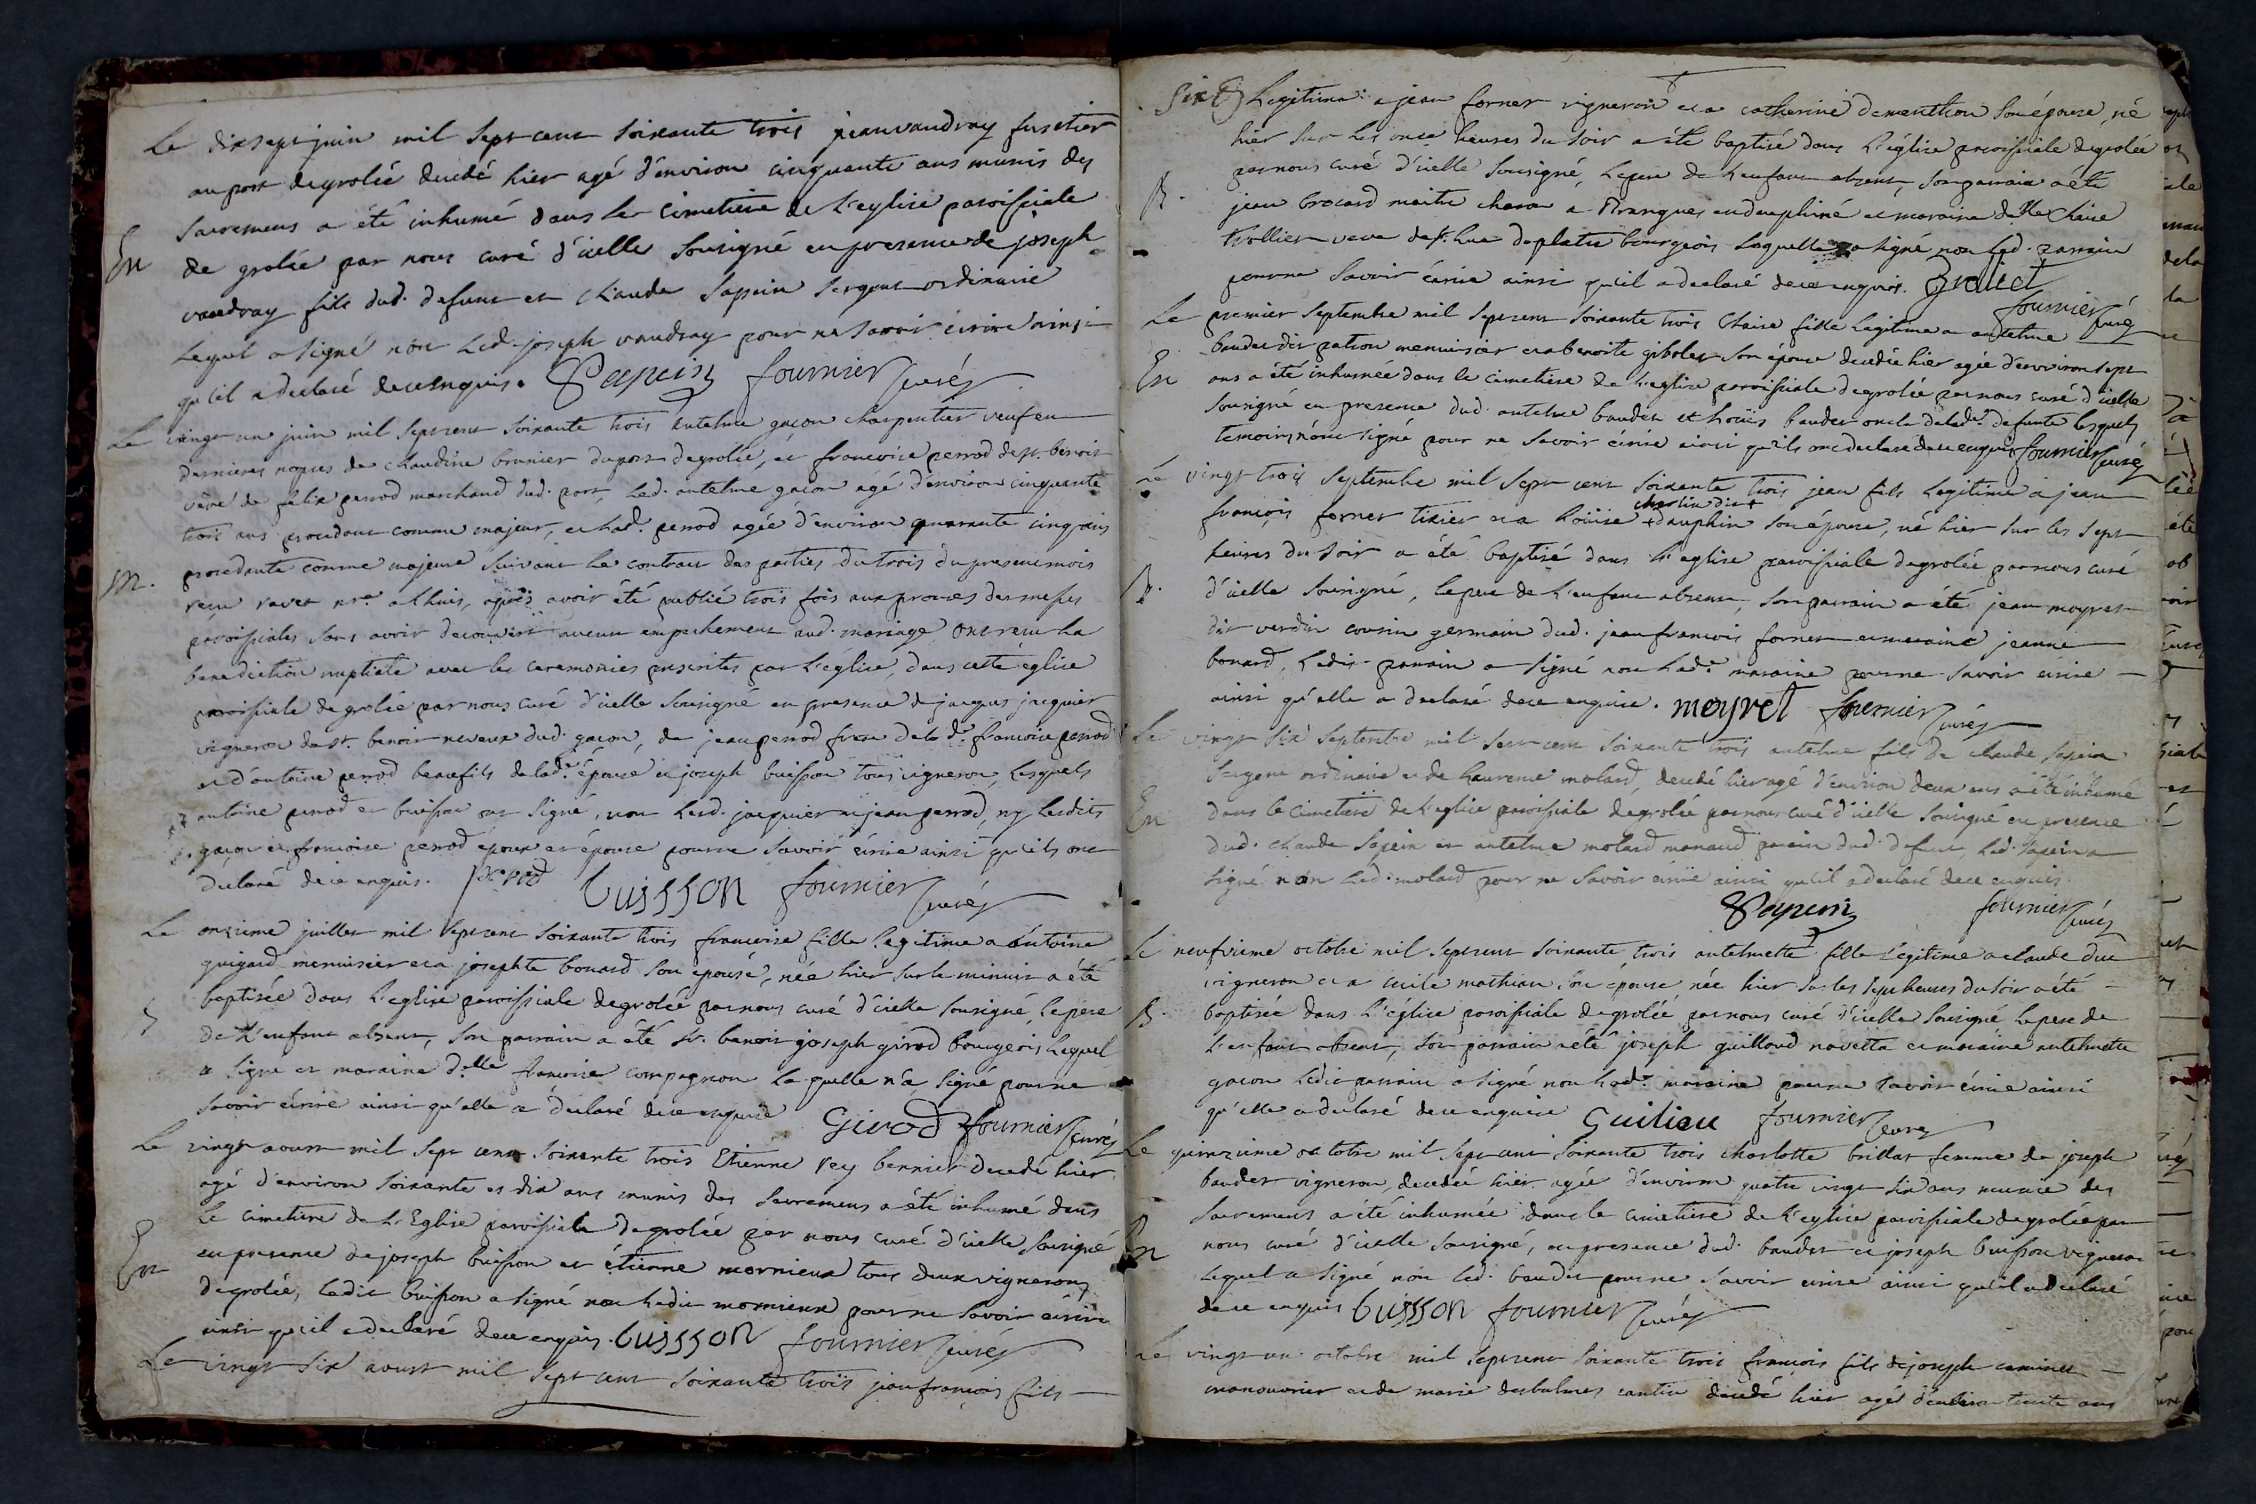 Le dix sept juin mil sept cent soixante trois jean vaudray fustier
au port de grolée decedé hier agé d'environ cinquante ans munis des
sacremens a été inhumé dans le cimetiere de L'eglise paroissiale
En
de grolée par nous curé d'icelle sousigné en presence de joseph
vaudray fils dud. defunt et claude sapein sergent ordinaire
Lequel a signé non Led. joseph vaudray pour ne savoir écrire ainsi
qu'il a declaré de ce enquis. Sapein fournier curé
Le vingt un juin mil sept cent soixante trois antelme gacon charpentier veuf en
dernieres nopces de claudine brunier du port de grolée, et francoise perrod de st. benoit
veve de felix perrod marchand dud. port Led. antelme gacon agé d'environ cinquante
trois ans procedant comme majeur, et Lad.e perrod agée d'environ quarante cinq ans
m.
procedante comme majeure suivant le contrat des parties du trois du present mois
recu ravet n.re a Lhuis, après avoir été publié trois fois aux prones des messes
paroissiales sans avoir decouvert aucun empechement aud. mariage ont recu La
benediction nuptiale avec les ceremonies prescrites par L'église, dans cette église
paroissiale de grolée par nous curé d'icelle sousigné en presence de jacques jacquier
vigneron de st. benoit neveux dud. gacon, de jean perrod frere de lad.e francoise perrod
et d'antoine perrod beaufils de lad.e épouse et joseph buisson tous vignerons, Lesquels
antoine perrod et buisson ont signé, non Lesd. jacquier ni jean perrod, ny Lesdits
gacon et francoise perrod époux et épouse pour ne savoir écrire ainsi qu'ils ont
declaré de ce enquis. perrod buisson fournier curé
Le onzieme juillet mil sept cent soixante trois francoise fille legitime a antoine
guigard menuisier et a josephte bonard son epouse, née hier sur le minuit a été
baptisée dans L'eglise paroissiale de grolée par nous curé d'icelle sousigné, Le pere
B
de L'enfant absent, son parrain a été Sr. benoit joseph girod bourgeois Lequel
a signé et maraine d.elle francoise compagnon laquelle n'a signé pour ne
savoir écrire ainsi qu'elle a declaré de ce enquise Girod fournier curé
Le vingt aoust mil sept cent soixante trois Etienne rey bernier decedé hier
agé d'environ soixante et dix ans munis des sacremens a été inhumé dans
Le cimetiere de L'Eglise paroissiale de grolée par nous curé d'icelle sousigné
En
en presence de joseph buisson et étienne mornieux tous deux vignerons
de grolée, Ledit buisson a signé non Ledit mornieux pour ne savoir écrire
ainsi qu'il a declaré de ce enquis. buisson fournier curé
Le vingt six aoust mil sept cent soixante trois jean francois fils
Legitime a jean fornet vigneron et a catherine dementhon son épouse, né
hier sur les onze heures du soir a été baptisé dans L'église paroissiale de grolée
par nous curé d'icelle sousigné, Le pere de L'enfant absent, son parrain a été
B.
jean brocard maitre charon a Brangues en dauphiné et maraine d.elle Claire
trollier veve de Luc deplatre bourgeois Laquelle a signé non Led. parrain
pour ne savoir écrire ainsi qu'il a declaré de ce enquis. Trollier
fournier curé
Le premier septembre mil sept cent soixante trois Claire fille legitime a antelme
baudet dit pation menuisier et a benoite gibolet son épouse decedée hier agée d'environ sept
En
ans a été inhumée dans le cimetiere de L'eglise paroissiale de grolée par nous curé d'icelle
sousigné en presence dud. antelme baudet et Louis baudet oncle de lad.e defunte Lesquels
temoins n'ont signé pour ne savoir écrire ainsi qu'ils ont declaré de ce enquis fournier curé
Le vingt trois septembre mil sept cent soixante trois jean fils Legitime a jean
charlin dit
francois fornet tixier et a Loüise + dauphin son épouse, né hier sur les sept
heures du soir a été baptisé dans L'eglise paroissiale de grolée par nous curé
B.
d'icelle sousigné, Le pere de L'enfant absent, son parrain a été jean moyret
dit verdin cousin germain dud. jean francois fornet et maraine jeanne
bonard, Ledit parrain a signé non Lad.e maraine pour ne savoir écrire
ainsi qu'elle a declaré de ce enquise. moyret fournier curé
Le vingt six septembre mil sept cent soixante trois antelme fils de claude sapein
sergent ordinaire et de Laurence molard, decedé hier agé d'environ deux ans a été inhumé
En
dans le cimetiere de L'eglise paroissiale de grolée par nous curé d'icelle sousigné en presence
dud. claude sapein et antelme molard parain dud. defunt, Led. sapein a
signé non Led. molard pour ne savoir écrire ainsi qu'il a declaré de ce enquis.
Sapein fournier curé
Le neufvieme octobre mil sept cent soixante trois antelmette fille Legitime a claude duc
vigneron et a cecile mathian son épouse née hier sur les sept heures du soir a été
B.
baptisée dans L'église paroissiale de grolée par nous curé d'icelle sousigné Le pere de
L'enfant absent, son parrain a été joseph guilloud navetta et maraine antelmette
gacon Ledit parrain a signé non Lad.e maraine pour ne savoir écrire ainsi
qu'elle a declaré de ce enquise Guiliou fournier curé
Le quinzieme octobre mil sept cent soixante trois charlotte brillat femme de joseph
baudet vigneron, decedée hier agée d'environ quatre vingt six ans munie des
sacremens a été inhumée dans le cimetiere de L'eglise paroissiale de grolée par
En
nous curé d'icelle sousigné, en presence dud. baudet et joseph buisson vigneron
Lequel a signé non Led. baudet pour ne savoir écrire ainsi qu'il a declaré
de ce enquis buisson fournier curé
Le vingt un octobre mil sept cent soixante trois francois fils de joseph caminet
manouvrier et de marie desbalmes decedé hier agé d'environ trente ans